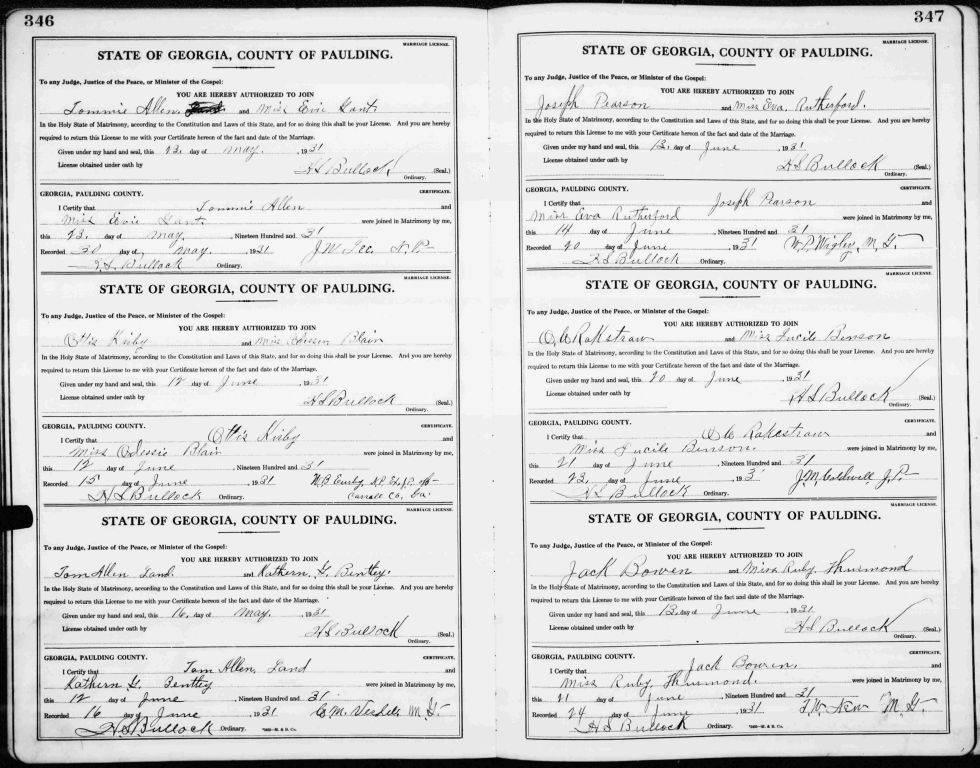 346
MARRIAGE LICENSE.
STATE OF GEORGIA, COUNTY OF PAULDING.
To any Judge, Justice of the Peace, or Minister of the Gospel:
YOU ARE HEREBY AUTHORIZED TO JOIN
Tommie Allen and Miss Evie Gant.
In the Holy State of Matrimony, according to the Constitution and Laws of this State, and for so doing this shall be your License. And you are hereby
required to return this License to me with your Certificate hereon of the fact and date of the Marriage.
Given under my hand and seal, this 23. day of May. , 1931
License obtained under oath by H S Bullock, (Seal.)
Ordinary.
GEORGIA, PAULDING COUNTY. CERTIFICATE.
I Certify that Tommie Allen and
Miss Evie Gant. were joined in Matrimony by me,
this 23. day of May. , Nineteen Hundred and 31
Recorded 30 day of May. , 1931 J.W. N.P.
H.S. Bullock Ordinary.
MARRIAGE LICENSE.
STATE OF GEORGIA, COUNTY OF PAULDING.
To any Judge, Justice of the Peace, or Minister of the Gospel:
YOU ARE HEREBY AUTHORIZED TO JOIN
Ottis Kirby and Miss Blair
In the Holy State of Matrimony, according to the Constitution and Laws of this State, and for so doing this shall be your License. And you are hereby
required to return this License to me with your Certificate hereon of the fact and date of the Marriage.
Given under my hand and seal, this 12 day of June , 1931
License obtained under oath by H S Bullock (Seal.)
Ordinary.
GEORGIA, PAULDING COUNTY. CERTIFICATE.
I Certify that Ottis Kirby and
Miss Odessie Blair were joined in Matrimony by me,
this 12 day of June , Nineteen Hundred and 31
Recorded 15 day of June , 1931 N.P. Ex. J.P. of
Carroll Co, Ga.
H S Bullock Ordinary.
MARRIAGE LICENSE.
STATE OF GEORGIA, COUNTY OF PAULDING.
To any Judge, Justice of the Peace, or Minister of the Gospel:
YOU ARE HEREBY AUTHORIZED TO JOIN
Tom Allen Land. and Kathern G. Bentley.
In the Holy State of Matrimony, according to the Constitution and Laws of this State, and for so doing this shall be your License. And you are hereby
required to return this License to me with your Certificate hereon of the fact and date of the Marriage.
Given under my hand and seal, this 16. day of May. , 1931
License obtained under oath by H S Bullock (Seal.)
Ordinary.
GEORGIA, PAULDING COUNTY. CERTIFICATE.
I Certify that Tom Allen, Land and
Kathern G. Bentley were joined in Matrimony by me,
this 12 day of June , Nineteen Hundred and 31.
Recorded 16 day of June , 1931 C.M. M.G.
H S Bullock Ordinary.
347
MARRIAGE LICENSE.
STATE OF GEORGIA, COUNTY OF PAULDING.
To any Judge, Justice of the Peace, or Minister of the Gospel:
YOU ARE HEREBY AUTHORIZED TO JOIN
Joseph Pearson and Miss Eva Rutherford.
In the Holy State of Matrimony, according to the Constitution and Laws of this State, and for so doing this shall be your License. And you are hereby
required to return this License to me with your Certificate hereon of the fact and date of the Marriage.
Given under my hand and seal, this 13. day of June , 1931
License obtained under oath by H S Bullock (Seal.)
Ordinary.
GEORGIA, PAULDING COUNTY. CERTIFICATE.
I Certify that Joseph Pearson and
Miss Eva Rutherford were joined in Matrimony by me,
this 14 day of June , Nineteen Hundred and 31
Recorded 20 day of June , 1931 W.P. Wigley, M.G.
H S Bullock Ordinary.
MARRIAGE LICENSE.
STATE OF GEORGIA, COUNTY OF PAULDING.
To any Judge, Justice of the Peace, or Minister of the Gospel:
YOU ARE HEREBY AUTHORIZED TO JOIN
O.C. Rakestraw and Miss Lucile Binson
In the Holy State of Matrimony, according to the Constitution and Laws of this State, and for so doing this shall be your License. And you are hereby
required to return this License to me with your Certificate hereon of the fact and date of the Marriage.
Given under my hand and seal, this 20 day of June , 1931
License obtained under oath by H S Bullock (Seal.)
Ordinary.
GEORGIA, PAULDING COUNTY. CERTIFICATE.
I Certify that O C Rakestraw and
Miss Lucile Binson. were joined in Matrimony by me,
this 21 day of June , Nineteen Hundred and 31
Recorded 22, day of June , 193 J.M. Coldwell J.P.
H S Bullock Ordinary.
MARRIAGE LICENSE.
STATE OF GEORGIA, COUNTY OF PAULDING.
To any Judge, Justice of the Peace, or Minister of the Gospel:
YOU ARE HEREBY AUTHORIZED TO JOIN
Jack Bowen and Miss Ruby, Thurmond
In the Holy State of Matrimony, according to the Constitution and Laws of this State, and for so doing this shall be your License. And you are hereby
required to return this License to me with your Certificate hereon of the fact and date of the Marriage.
Given under my hand and seal, this 13. day of June , 1931
License obtained under oath by H S Bullock (Seal.)
Ordinary.
GEORGIA, PAULDING COUNTY. CERTIFICATE.
I Certify that Jack Bowen, and
Miss Ruby, Thurmond. were joined in Matrimony by me,
this 21 day of June , Nineteen Hundred and 31
Recorded 24 day of June , 1931 New M.G.
H S Bullock Ordinary.